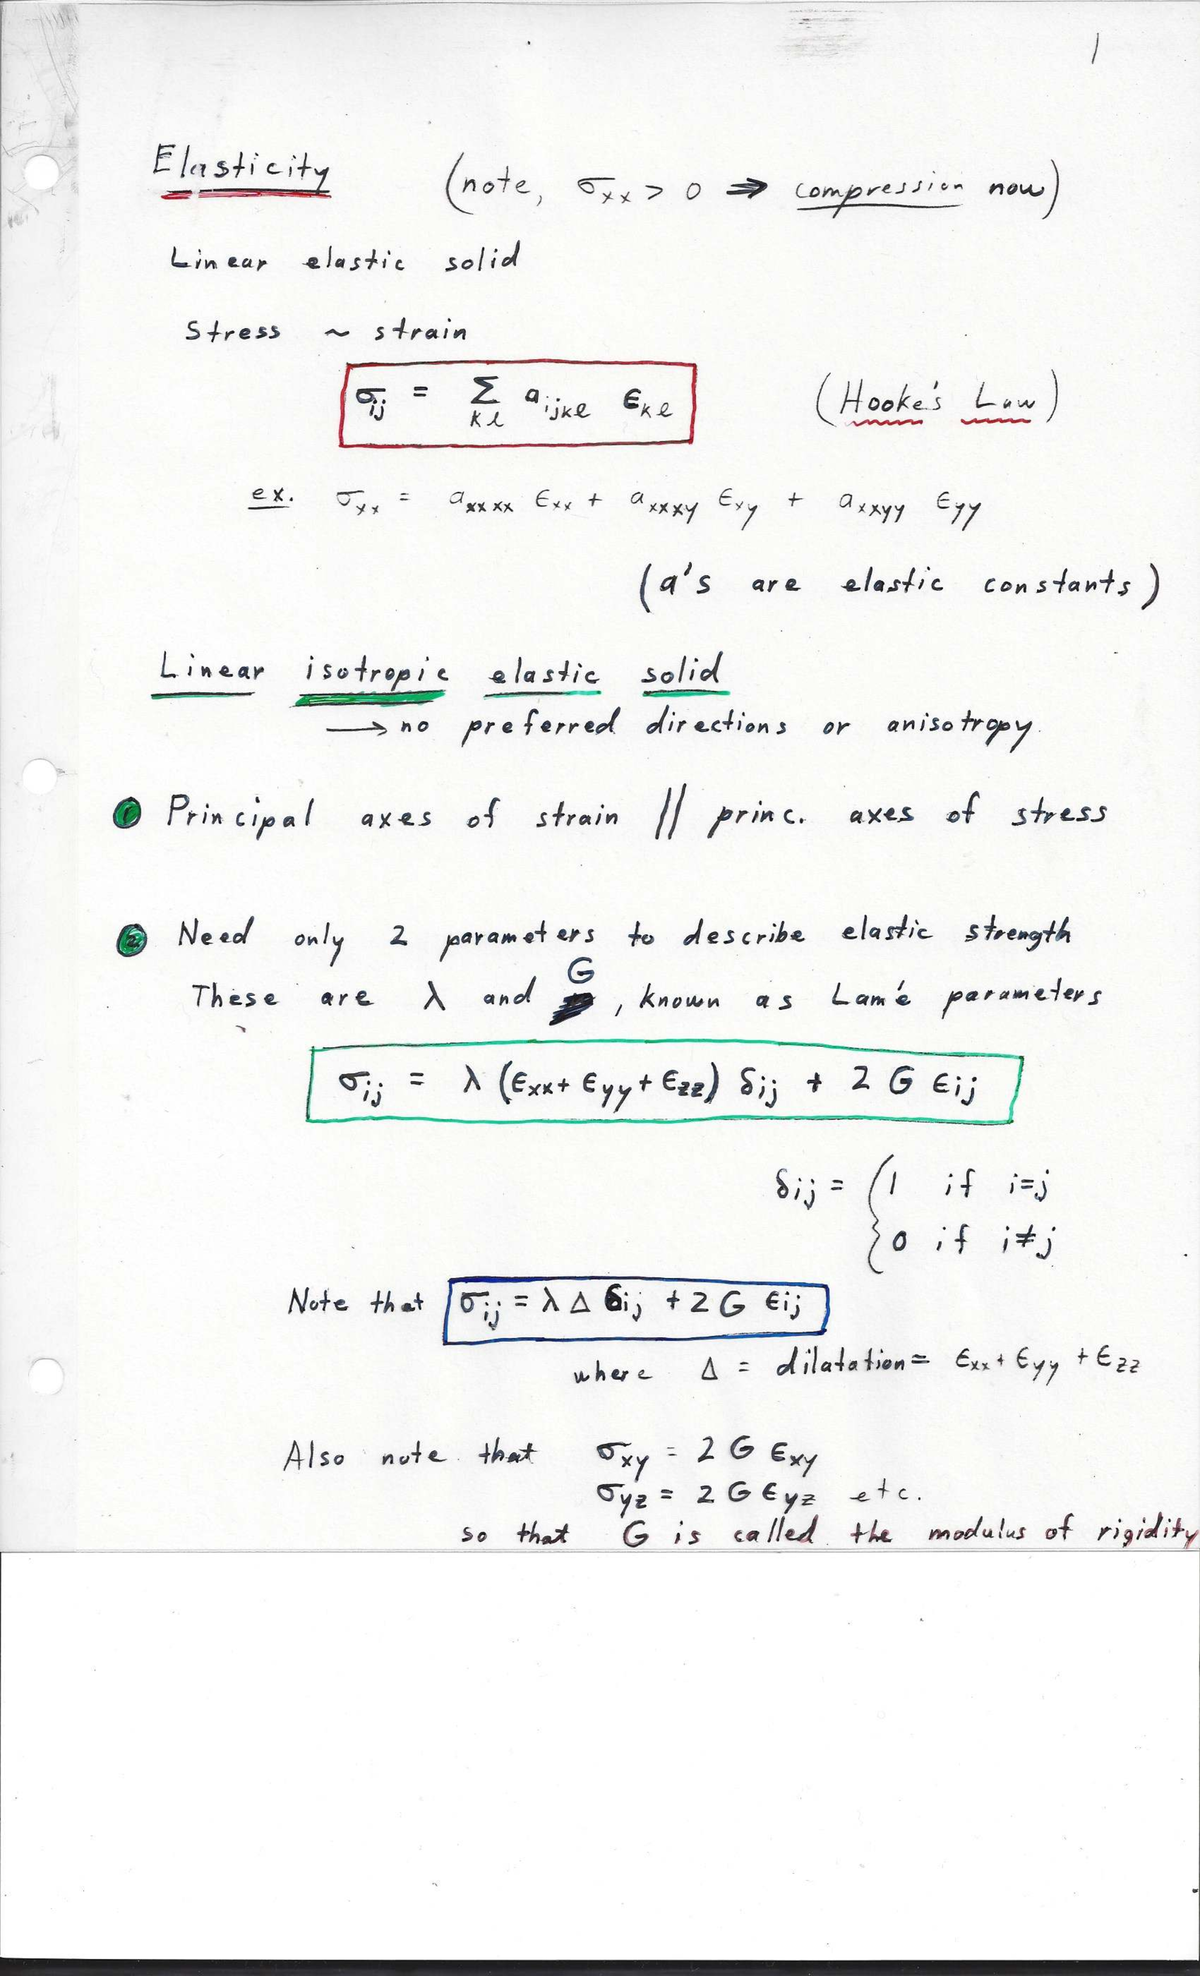 1
Elasticity (note, σxx > 0 ⇒ compression now)
Linear elastic solid
Stress ~ strain
σij = Σkl aijkl εkl (Hooke's Law)
ex. σxx = axxxx εxx + axxxy εxy + axxyy εyy
(a's are elastic constants)
Linear isotropic elastic solid
→ no preferred directions or anisotropy.
① Principal axes of strain // princ. axes of stress
② Need only 2 parameters to describe elastic strength
These are λ and G, known as Lamé parameters
σij = λ (εxx + εyy + εzz) δij + 2 G εij
δij = { 1 if i=j
0 if i≠j
Note that σij = λ Δ δij + 2 G εij
where Δ = dilatation = εxx + εyy + εzz
Also note that σxy = 2 G εxy
σyz = 2 G εyz etc.
so that G is called the modulus of rigidity